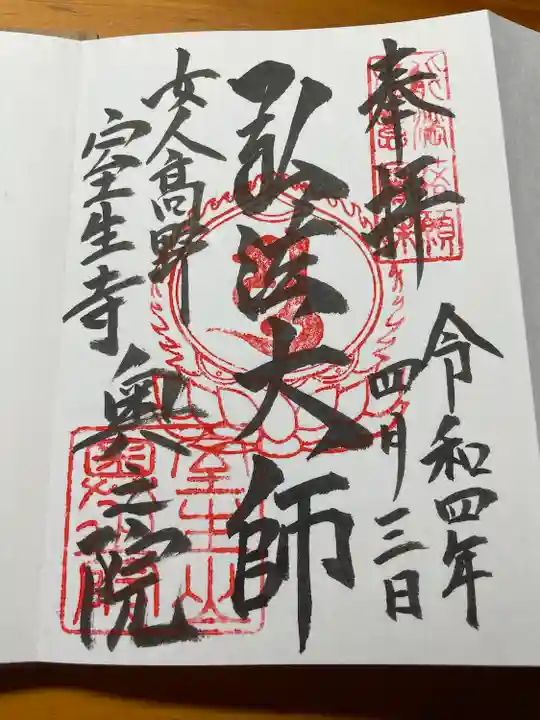 奉拝
令和四年
四月三日
弘法大師
女人高野
室生寺
奥之院
室生山